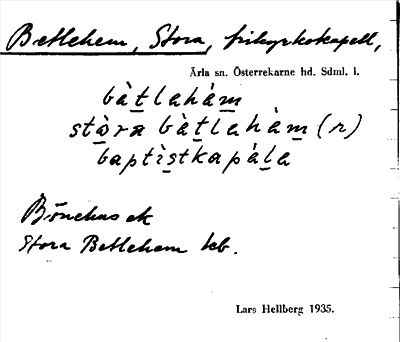 Betlehem, Stora, frikyrkokapell,
Ärla sn. Österrekarne hd. Sdml. l.
bàt̲lahám̲
stò̲ra bàt̲lahàm̲ (r)
baptìs̲tkapál̲a
Bönehus ek
Stora Betlehem kb.
Lars Hellberg 1935.